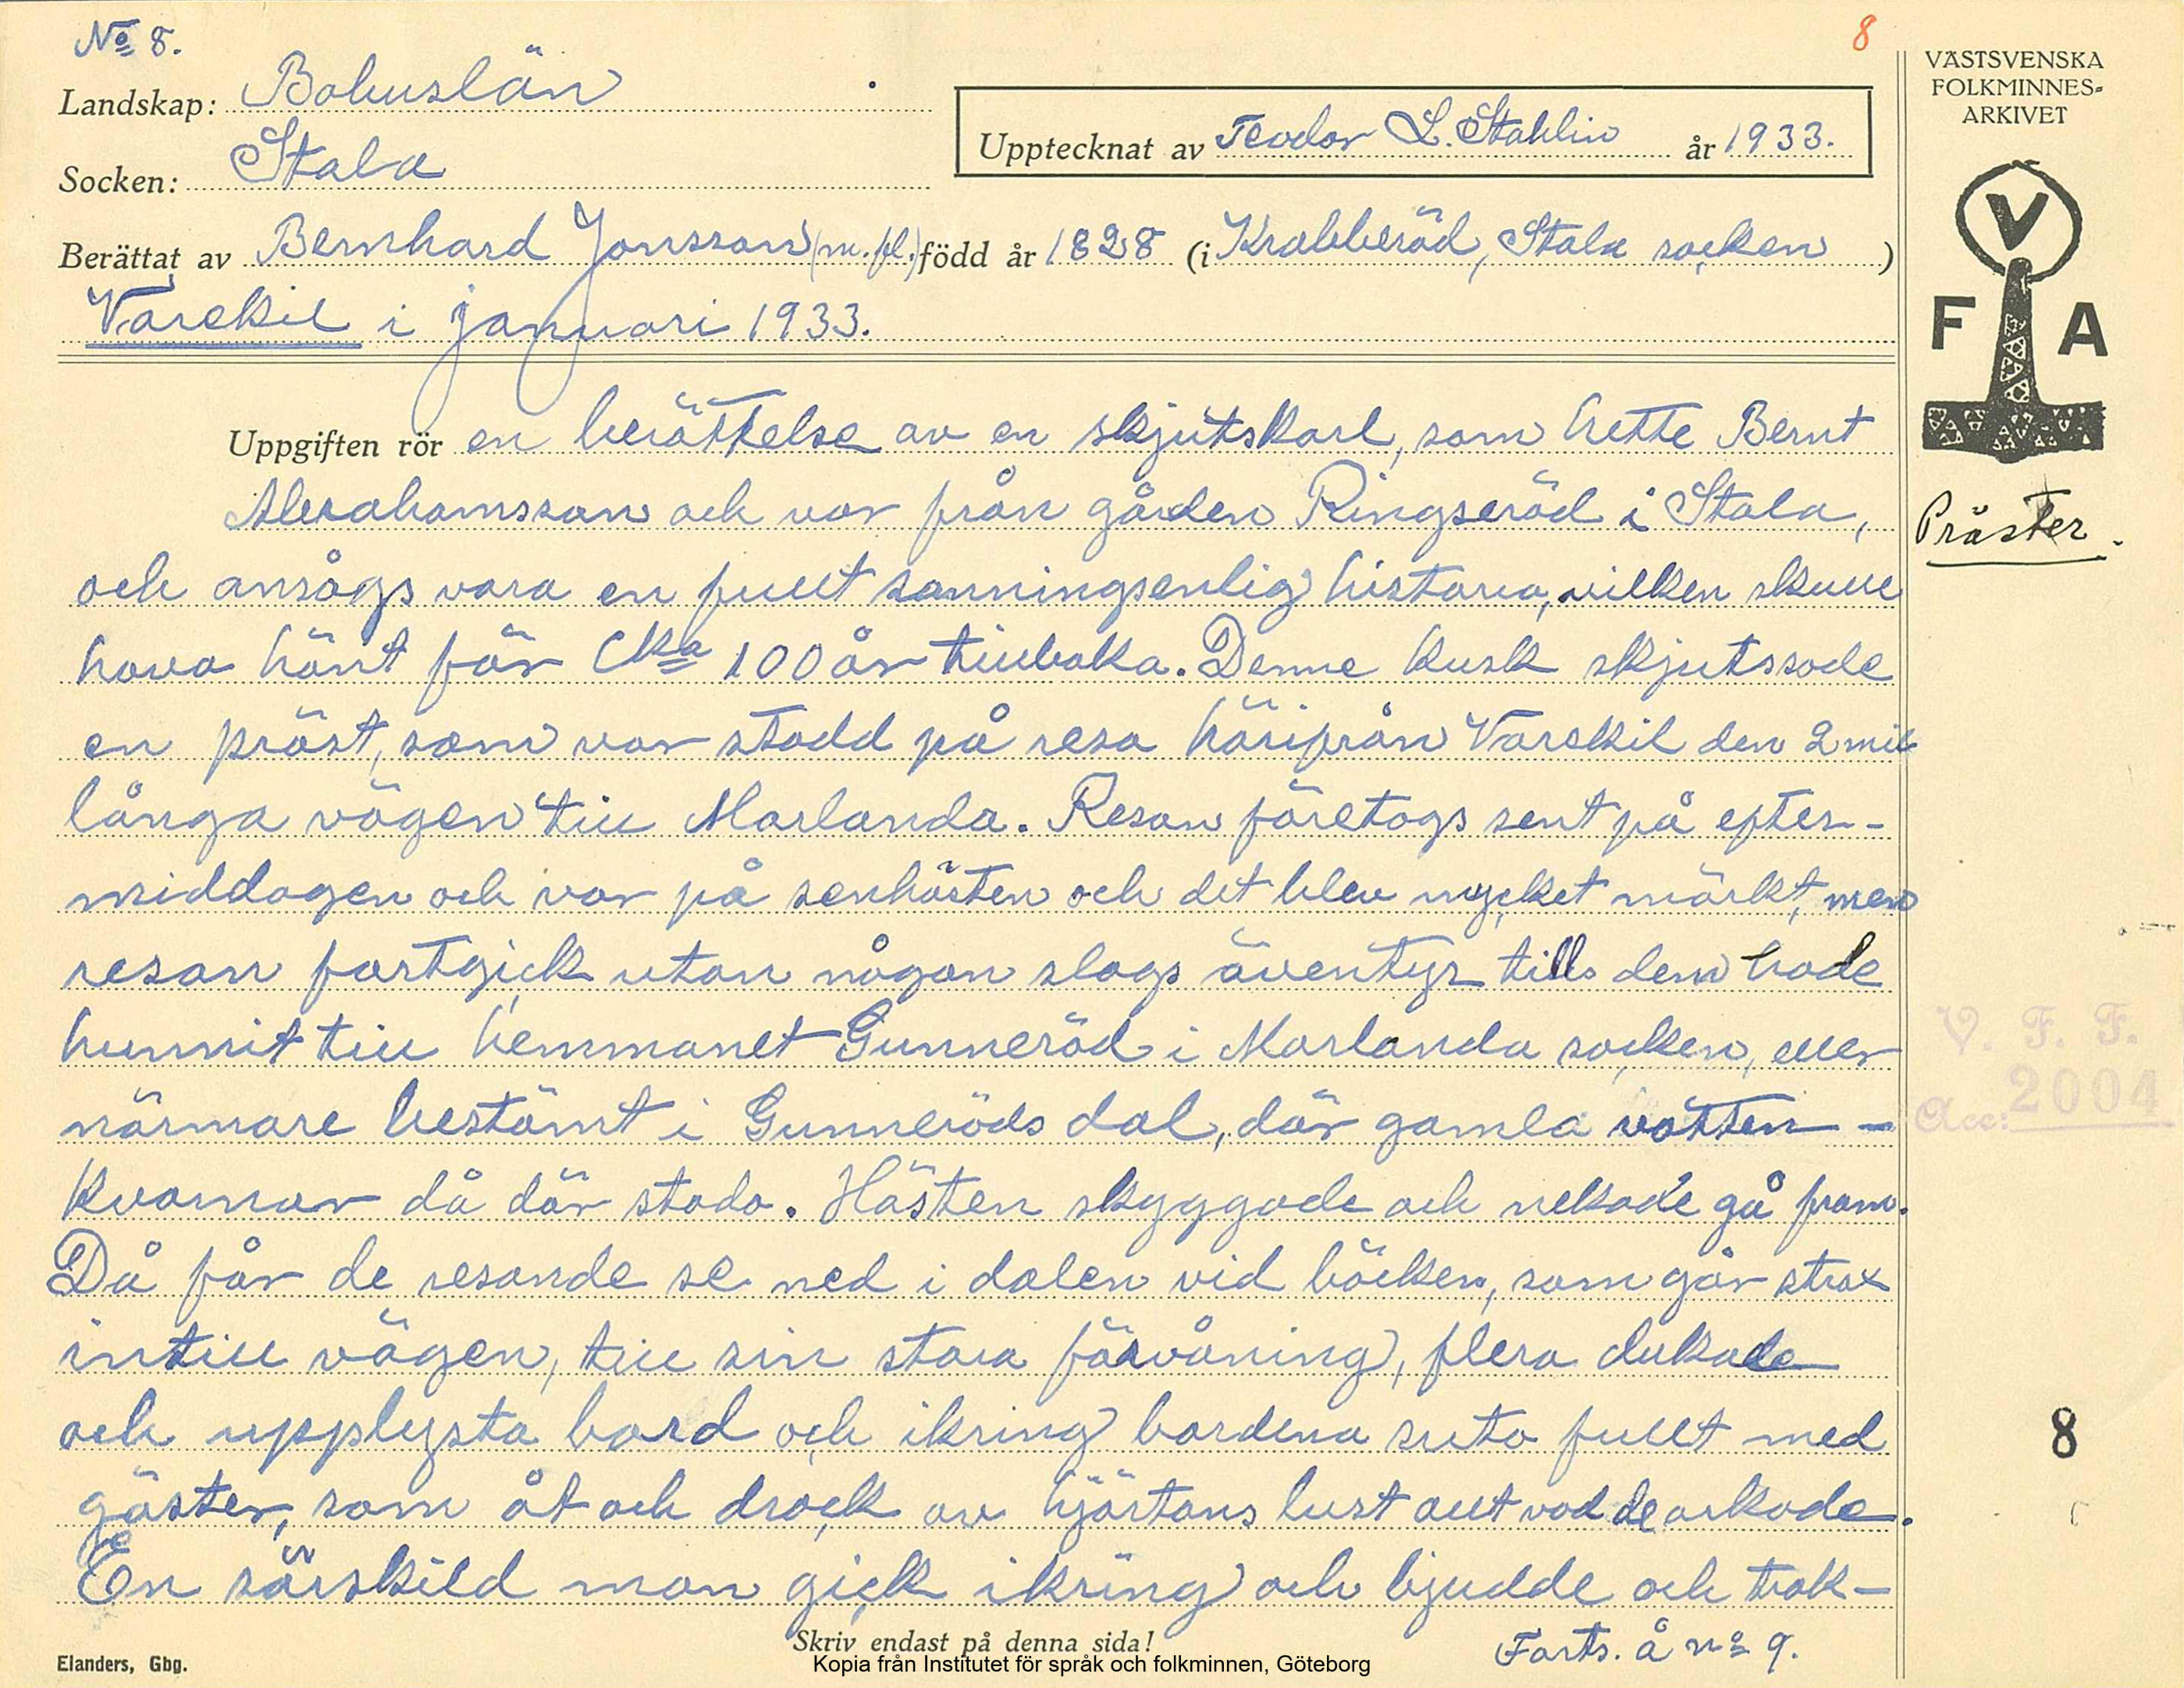 No 8.
8
Landskap: Bohuslän
Socken: Stala
Upptecknat av Teodor L. Stahlin år 1933.
Berättat av Bernhard Jonsson (m. fl.) född år 1828 (i Krabberöd, Stala socken)
Varekil i januari 1933.
VÄSTSVENSKA
FOLKMINNES-
ARKIVET
V
F A
Präster.
Uppgiften rör en berättelse av en skjutskarl, som hette Bernt
Abrahamsson och var från gården Ringseröd i Stala,
och ansågs vara en fullt sanningsenlig historia, vilken skulle
hava hänt för Cka 100 år tillbaka. Denne kusk skjutssade
en präst, som var stadd på resa härifrån Varekil den 2 mil
långa vägen till Morlanda. Resan företogs sent på efter-
middagen och var på senhösten och det blev mycket mörkt, men
resan fortgick utan någon slags äventyr tills dem hade
hunnit till hemmanet Gunneröd i Morlanda socken, eller
närmare bestämt i Gunneröds dal, där gamla vatten-
kvarnar då där stodo. Hästen skyggade och nekade gå fram.
Då får de resande se ned i dalen vid bäcken, som går strax
intill vägen, till sin stora förvåning, flera dukade
och upplysta bord och ikring bordena suto fullt med
gäster, som åt och drack av hjärtans lust allt vad de orkade.
En särskild man gick ikring och bjudde och trak-
Forts. å no 9.
V. F. F.
Acc: 2004
8
Skriv endast på denna sida!
Elanders, Gbg.
Kopia från Institutet för språk och folkminnen, Göteborg